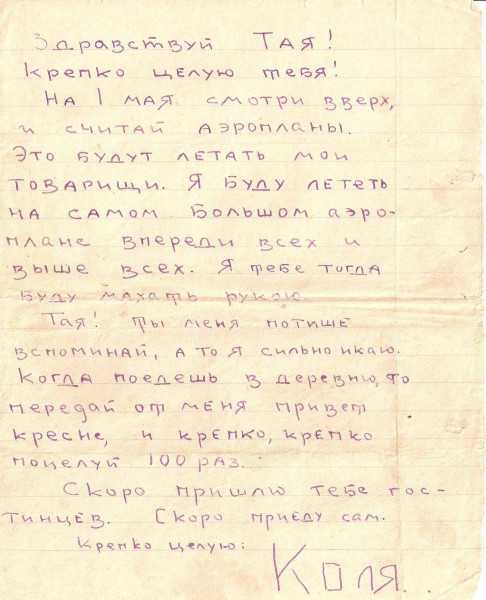 Здравствуй Тая!
Крепко целую тебя!
На 1 мая смотри вверх,
и считай аэропланы.
Это будут летать мои
товарищи. Я буду лететь
на самом большом аэро-
плане впереди всех и
выше всех. Я тебе тогда
буду махать рукою
Тая! ты меня потише
вспоминай, а то я сильно икаю.
Когда поедешь в деревню, то
передай от меня привет
кресне, и крепко, крепко
поцелуй 100 раз.
Скоро пришлю тебе гос-
тинцев. Скоро приеду сам.
Крепко целую:
Коля.